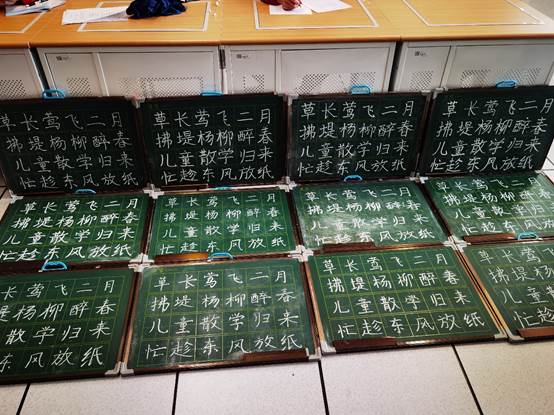 草长莺飞二月
拂堤杨柳醉春
儿童散学归来
忙趁东风放纸
草长莺飞二月
拂堤杨柳醉春
儿童散学归来
忙趁东风放纸
草长莺飞二月
拂堤杨柳醉春
儿童散学归来
忙趁东风放纸
草长莺飞二月
拂堤杨柳醉春
儿童散学归来
忙趁东风放纸
草长莺飞二月
拂堤杨柳醉春
儿童散学归来
忙趁东风放纸
草长莺飞二月
拂堤杨柳醉春
儿童散学归来
忙趁东风放纸
草长莺飞二月
拂堤杨柳醉春
儿童散学归来
忙趁东风放纸
草长莺飞二月
拂堤杨柳醉春
儿童散学归
忙趁东风放
草长莺飞二月
堤杨柳醉春
童散学归来
东风放纸
草长莺飞二月
拂堤杨柳醉春
儿童散学归来
忙趁东风放纸
草长莺飞二月
拂堤杨柳醉春
儿童散学归来
忙趁东风放纸
草长莺飞二
拂堤杨柳
儿童散学
忙趁东风